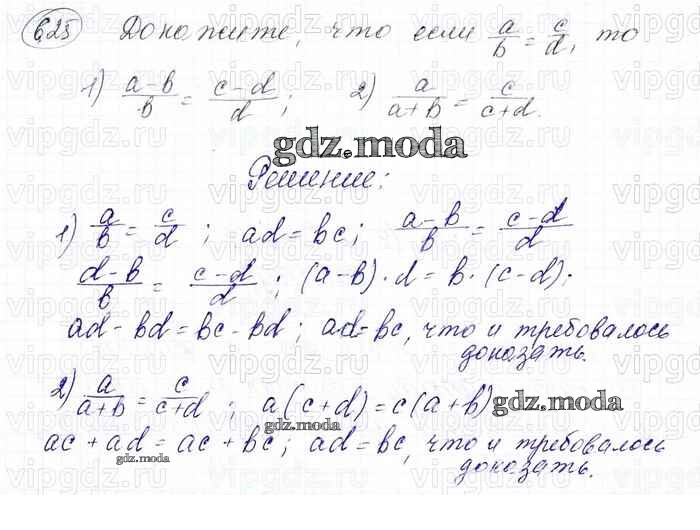 625 Докажите, что если a/b = c/d, то
1) (a-b)/b = (c-d)/d; 2) a/(a+b) = c/(c+d).
gdz.moda
Решение:
1) a/b = c/d; ad = bc; (a-b)/b = (c-d)/d
(d-b)/b = (c-d)/d; (a-b)·d = b·(c-d);
ad - bd = bc - bd; ad = bc, что и требовалось
доказать.
2) a/(a+b) = c/(c+d); a(c+d) = c(a+b)
gdz.moda
ac + ad = ac + bc; ad = bc, что и требовалось
gdz.moda
доказать.
vipgdz.ru